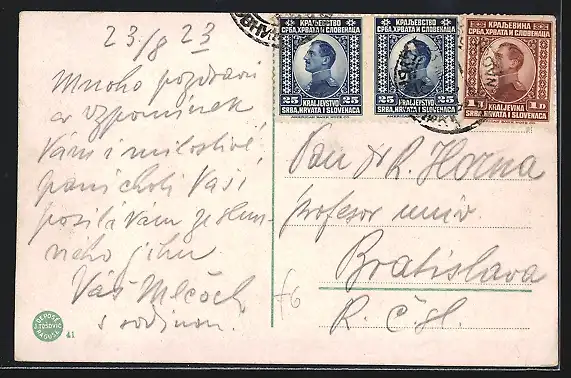 23/8 23
Mnoho pozdravů
a vzpomínek
Vám i milostivé
paní choti Vaší
posílá Vám ze slun-
ného jihu
Váš Mlčoch
s rodinou.
КРАЉЕВСТВО
СРБА, ХРВАТА И СЛОВЕНАЦА
25 25
KRALJEVSTVO
SRBA, HRVATA I SLOVENACA
КРАЉЕВСТВО
СРБА, ХРВАТА И СЛОВЕНАЦА
25 25
KRALJEVSTVO
SRBA, HRVATA I SLOVENACA
КРАЉЕВИНА
СРБА, ХРВАТА И СЛОВЕНАЦА
1 Д 1 D
KRALJEVINA
SRBA, HRVATA I SLOVENACA
Pan dr R. Horna
profesor univ.
Bratislava
R. Čsl.
f6
DEPOSÉ
J. TOŠOVIĆ
RAGUSE
41